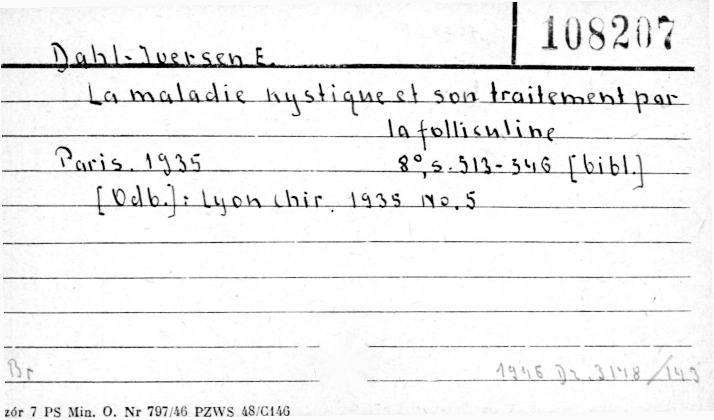 108207
Dahl-Iversen E.
La maladie kystique et son traitement par
la folliculine
Paris. 1935 8°, s. 513-546 [bibl.]
[Odb.]: Lyon chir. 1935 No. 5
Br 1946 Dz. 3148/143
zór 7 PS Min. O. Nr 797/46 PZWS 48/C146